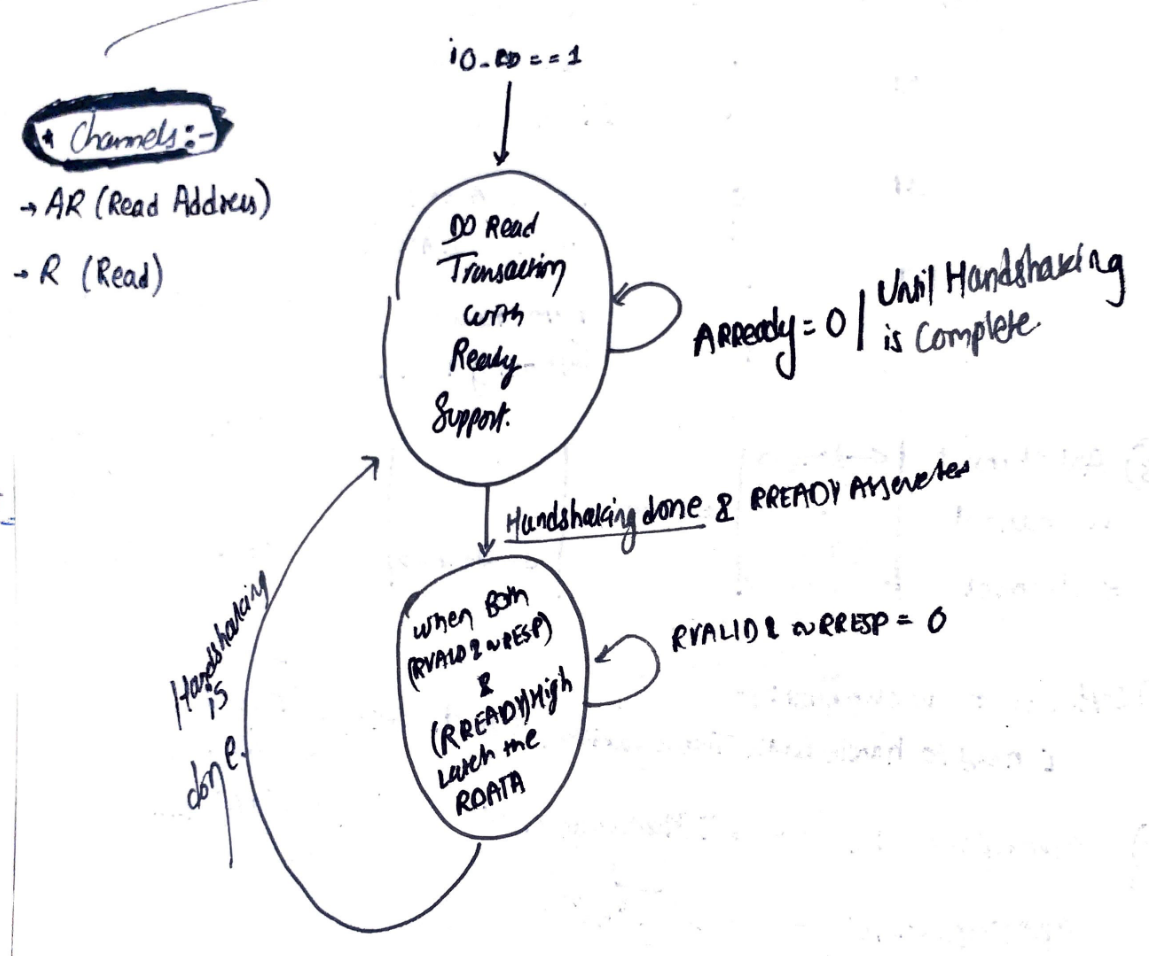 io_RD == 1
* Channels:-
→ AR (Read Address)
→ R (Read)
DO Read
Transaction
with
Ready
Support.
ARReady = 0 | Until Handshaking
is Complete.
Handshaking done & RREADY
When Both
(RVALID & ~RRESP)
&
(RREADY) High
Latch the
RDATA
RVALID & ~RRESP = 0
Handshaking
is
done.